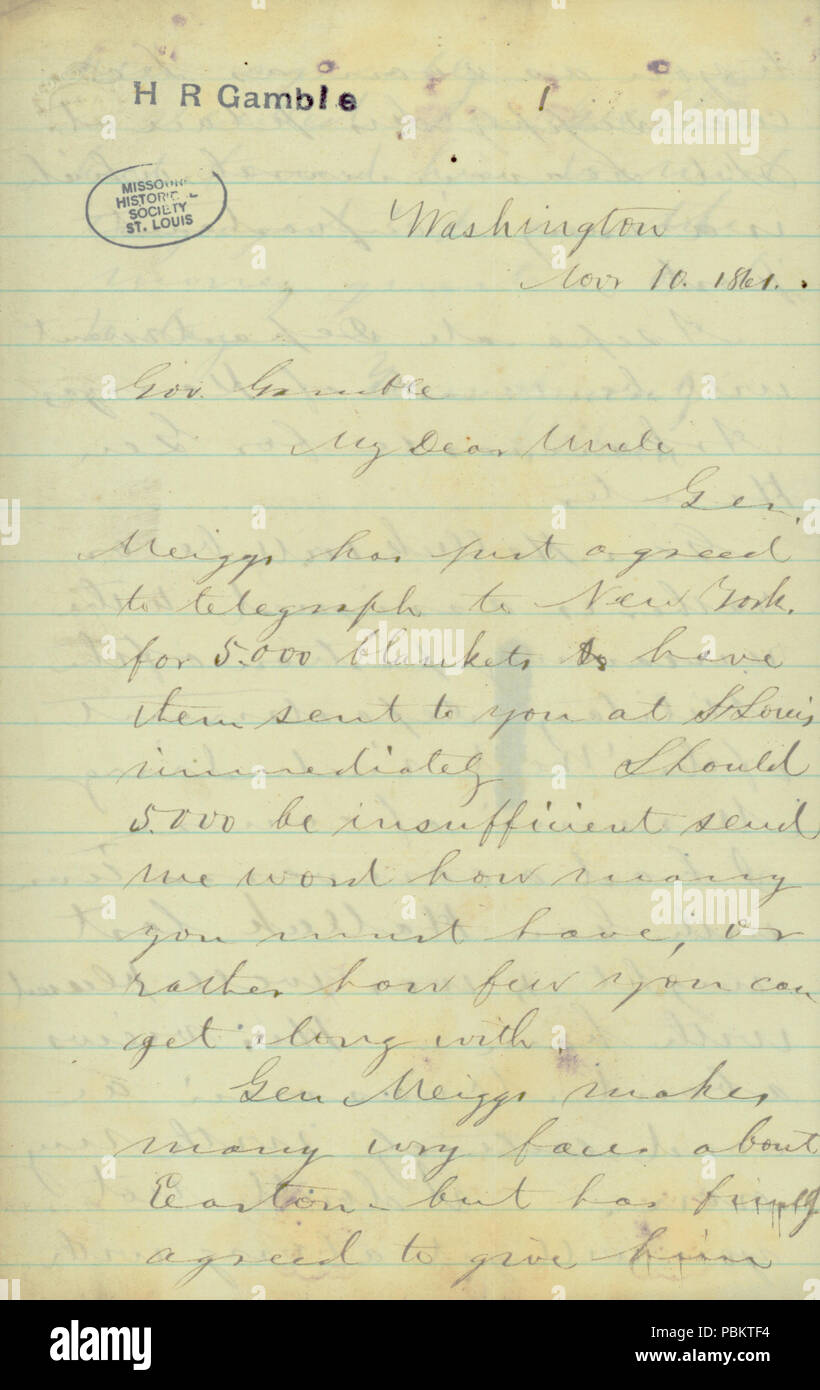 H R Gamble 1
MISSOURI
HISTORICAL
SOCIETY
ST. LOUIS
Washington
Novr 10. 1861.
Gov. Gamble
My Dear Uncle
Gen.
Meiggs has just agreed
to telegraph to New York.
for 5.000 blankets to have
them sent to you at St Louis
immediately Should
5.000 be insufficient send
me word how many
you must have, or
rather how few you can
get along with.
Gen Meiggs makes
many wry faces about
Easton - but has finally
agreed to give him
alamy
Image ID: PBKTF4
www.alamy.com